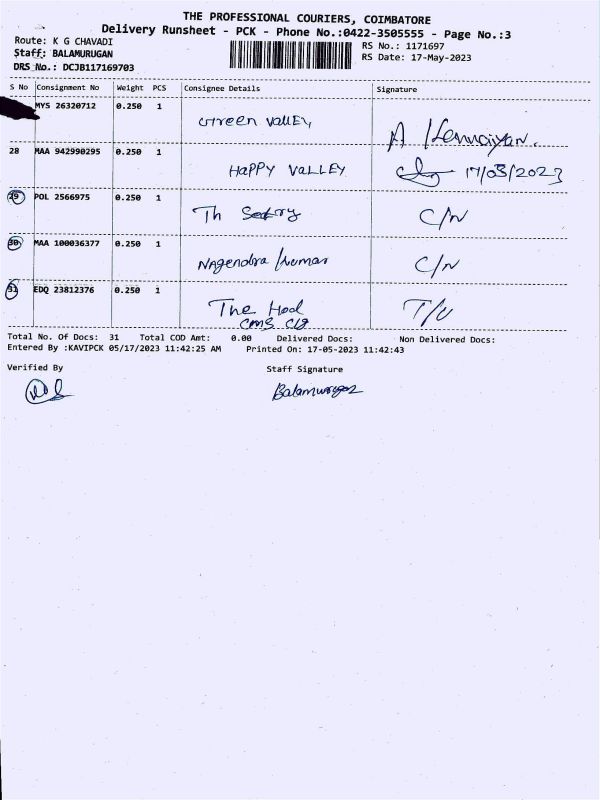 THE PROFESSIONAL COURIERS, COIMBATORE
Delivery Runsheet - PCK - Phone No.:0422-3505555 - Page No.:3
Route: K G CHAVADI
RS No.: 1171697
Staff: BALAMURUGAN
RS Date: 17-May-2023
DRS No.: DCJB117169703
S No Consignment No Weight PCS Consignee Details Signature
MYS 26320712 0.250 1 Green VallEy
28 MAA 942990295 0.250 1 HaPPY VaLLEY 17/05/2023
29 POL 2566975 0.250 1 Th C/N
30 MAA 100036377 0.250 1 Nagendra Kumar C/N
31 EDQ 23812376 0.250 1 The Hod T/U
CMS Clg
Total No. Of Docs: 31 Total COD Amt: 0.00 Delivered Docs: Non Delivered Docs:
Entered By :KAVIPCK 05/17/2023 11:42:25 AM Printed On: 17-05-2023 11:42:43
Verified By Staff Signature
Balamurugan